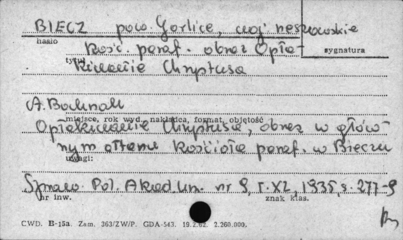 BIECZ pow. Gorlice, woj. rzeszowskie
hasło
Kość. paraf. obraz Opła-
sygnatura
tytuł
kiwanie Chrystusa
A. Bochnak
miejsce, rok wyd., nakładca, format, objętość
Opłakiwanie Chrystusa, obraz w głów-
nym ołtarzu kościoła paraf. w Bieczu
uwagi:
Spraw. Pol. Akad. Um. nr 9, t. XL, 1935, s. 277-9
nr inw.
znak klas.
CWD. B-15a. Zam. 363/ZW/P. GDA-543. 19.2.62. 2.260.000.